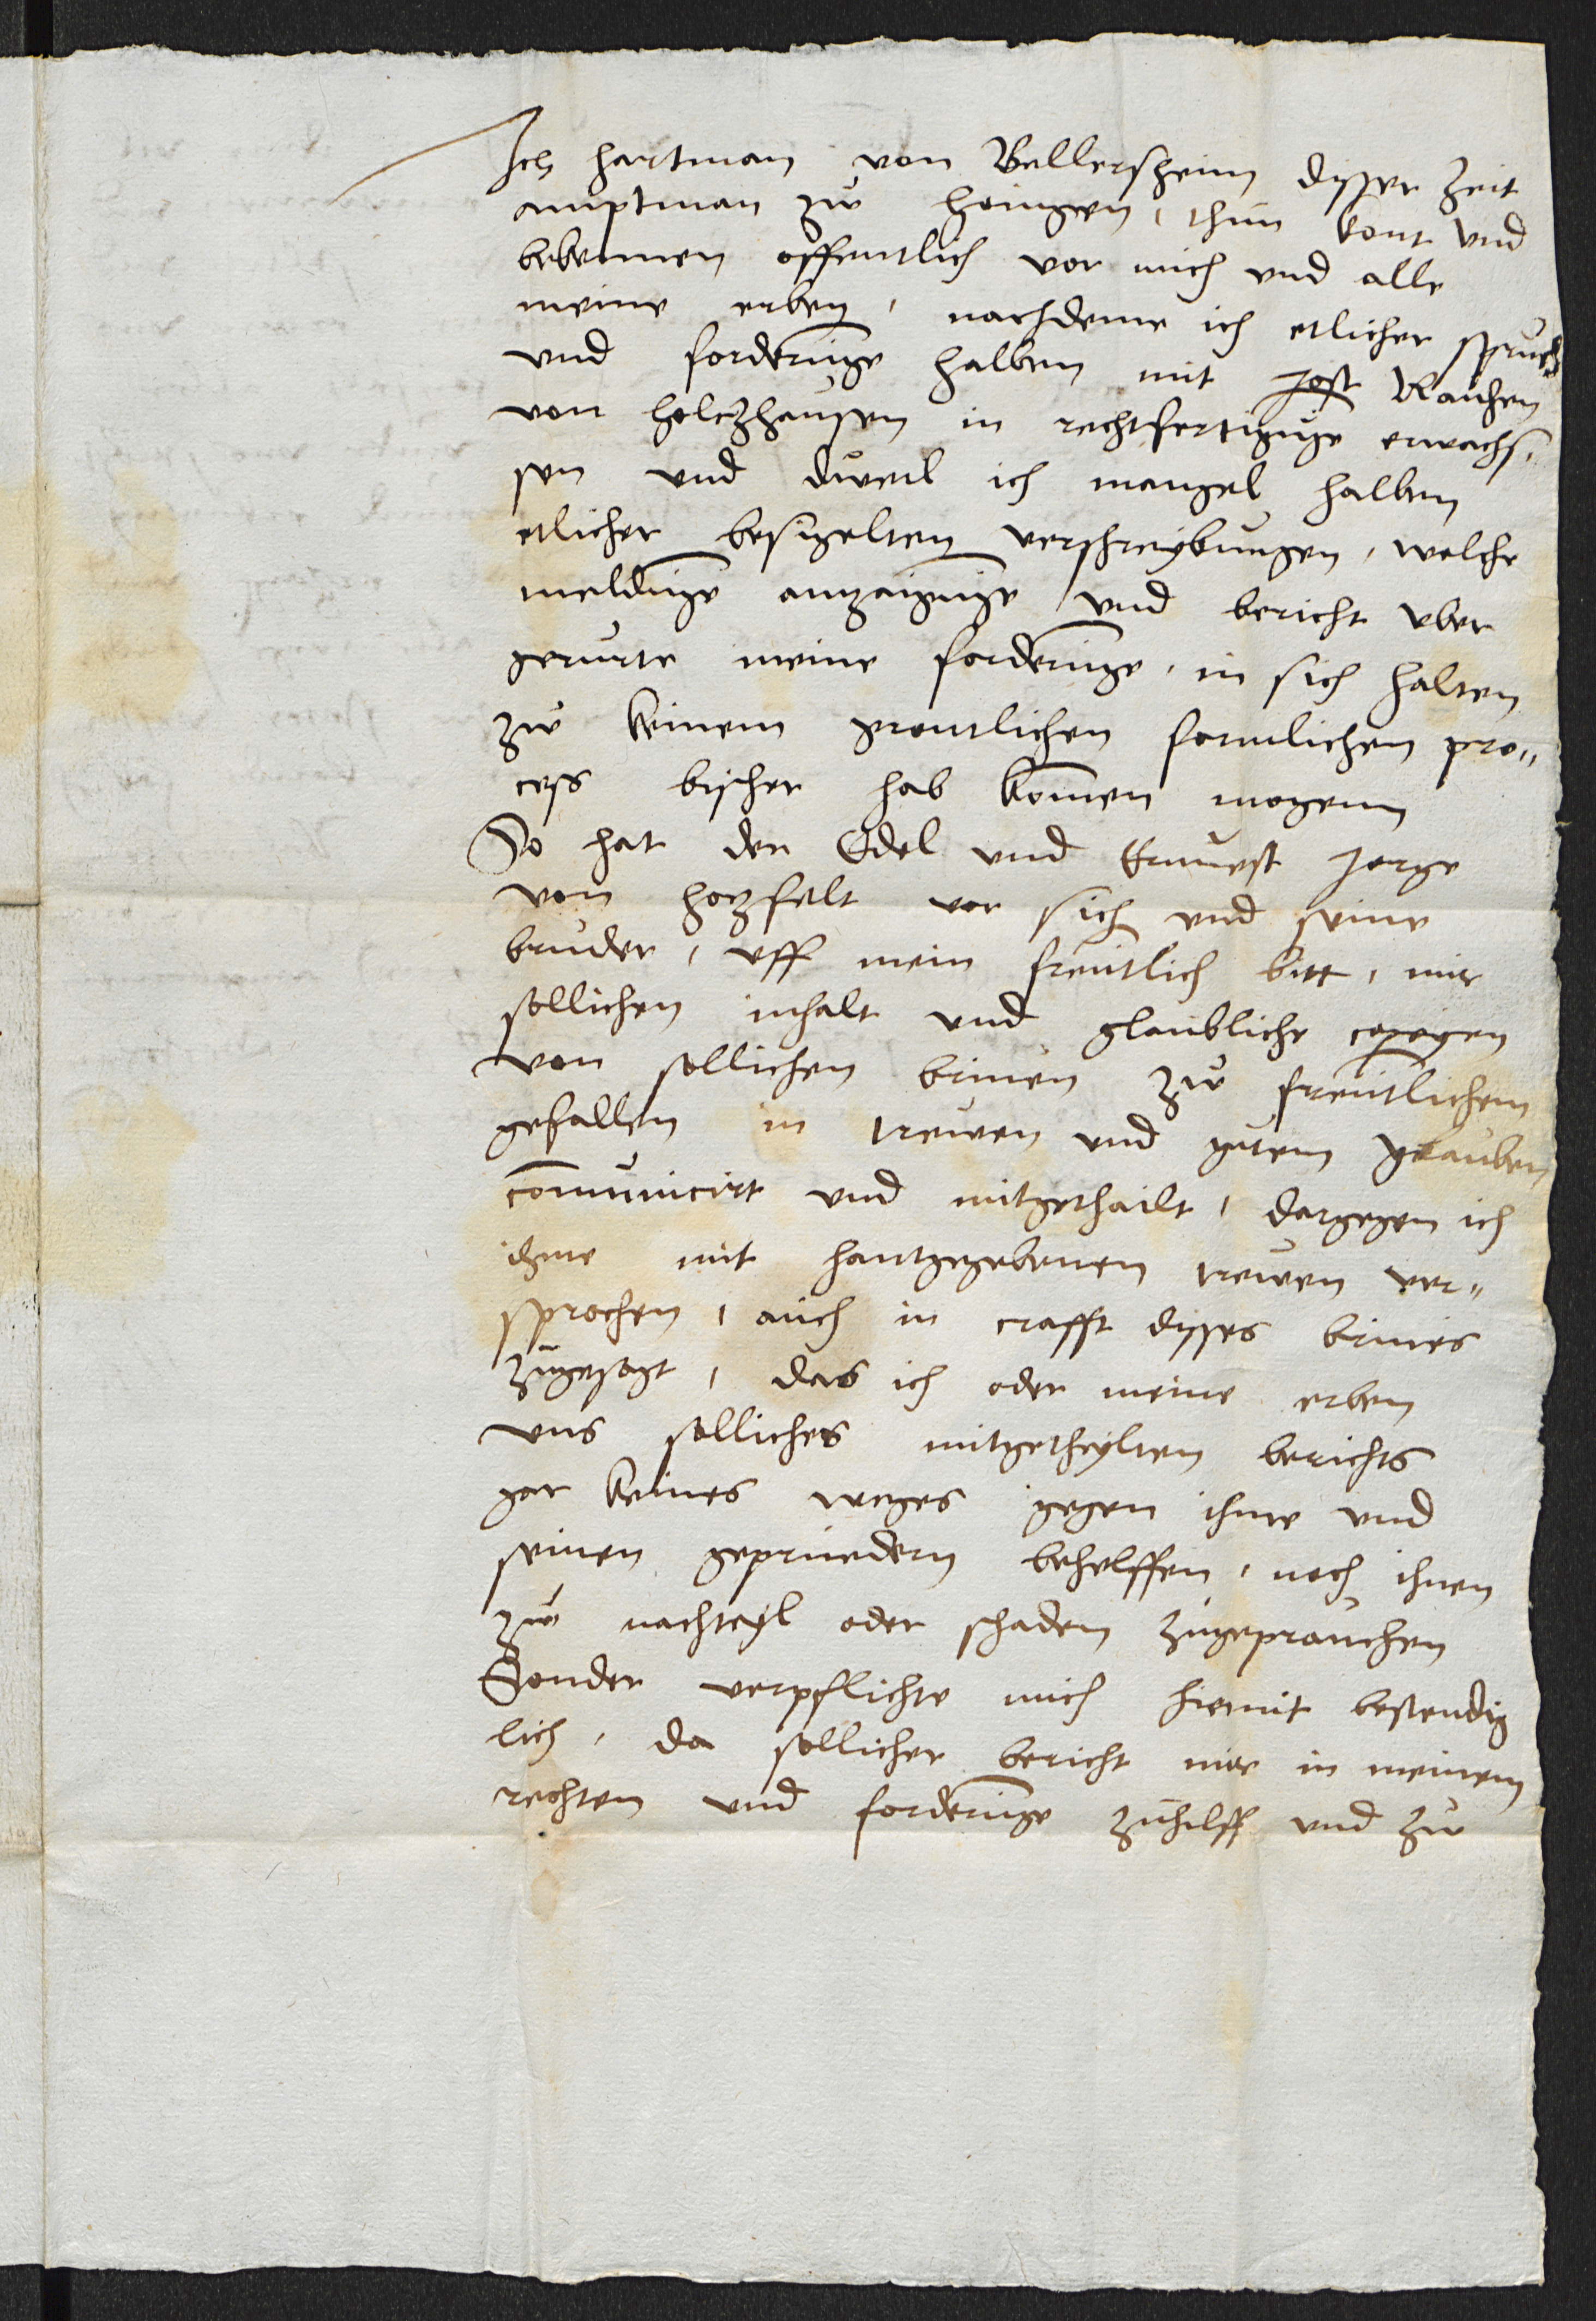 Ich hartman von Bellersheim disser Zeit
amptman zu hoingen, thun kont und
bekennen offentlich vor mich und alle
meine erben, nachdeme ich etlicher spruch
und forderunge halben mit Jost Rauhen
von holczhausen in rechtfertigunge erwachs,
sen und diweil ich mangel halben
etlicher besigelten verschreybungen, welche
meldunge anzaigunge und bericht uber
gerurte meine forderunge, in sich halten
zu keinem grontlichen formlichen pro"
cess bischer hab komen mogenn
So hat der Edel und Ernvest Jorge
von hozfelt vor sich und seine
bruder, uff mein freuntlich bitt, mir
sollichen inhalt und glaubliche copeyen
von sollichen brieven zu freuntlichem
gefallen in treuwen und gutem glauben
comunicirt und mitgethailt, dargegen ich
ihme mit hantgegebenen treuwen ver"
sprochen, auch in crafft disses brieves
zugesagt, das ich oder meine erben
uns solliches mitgetheylten berichts
gar keines weges gegen ihme und
seinen gepruedern behelffen, noch ihnen
zu nachteyl oder schaden zugeprauchen
Sonder verpflichte mich hiemit bestendig
lich, da sollicher bericht mir in meinem
rechten und forderunge zuhilff und zu